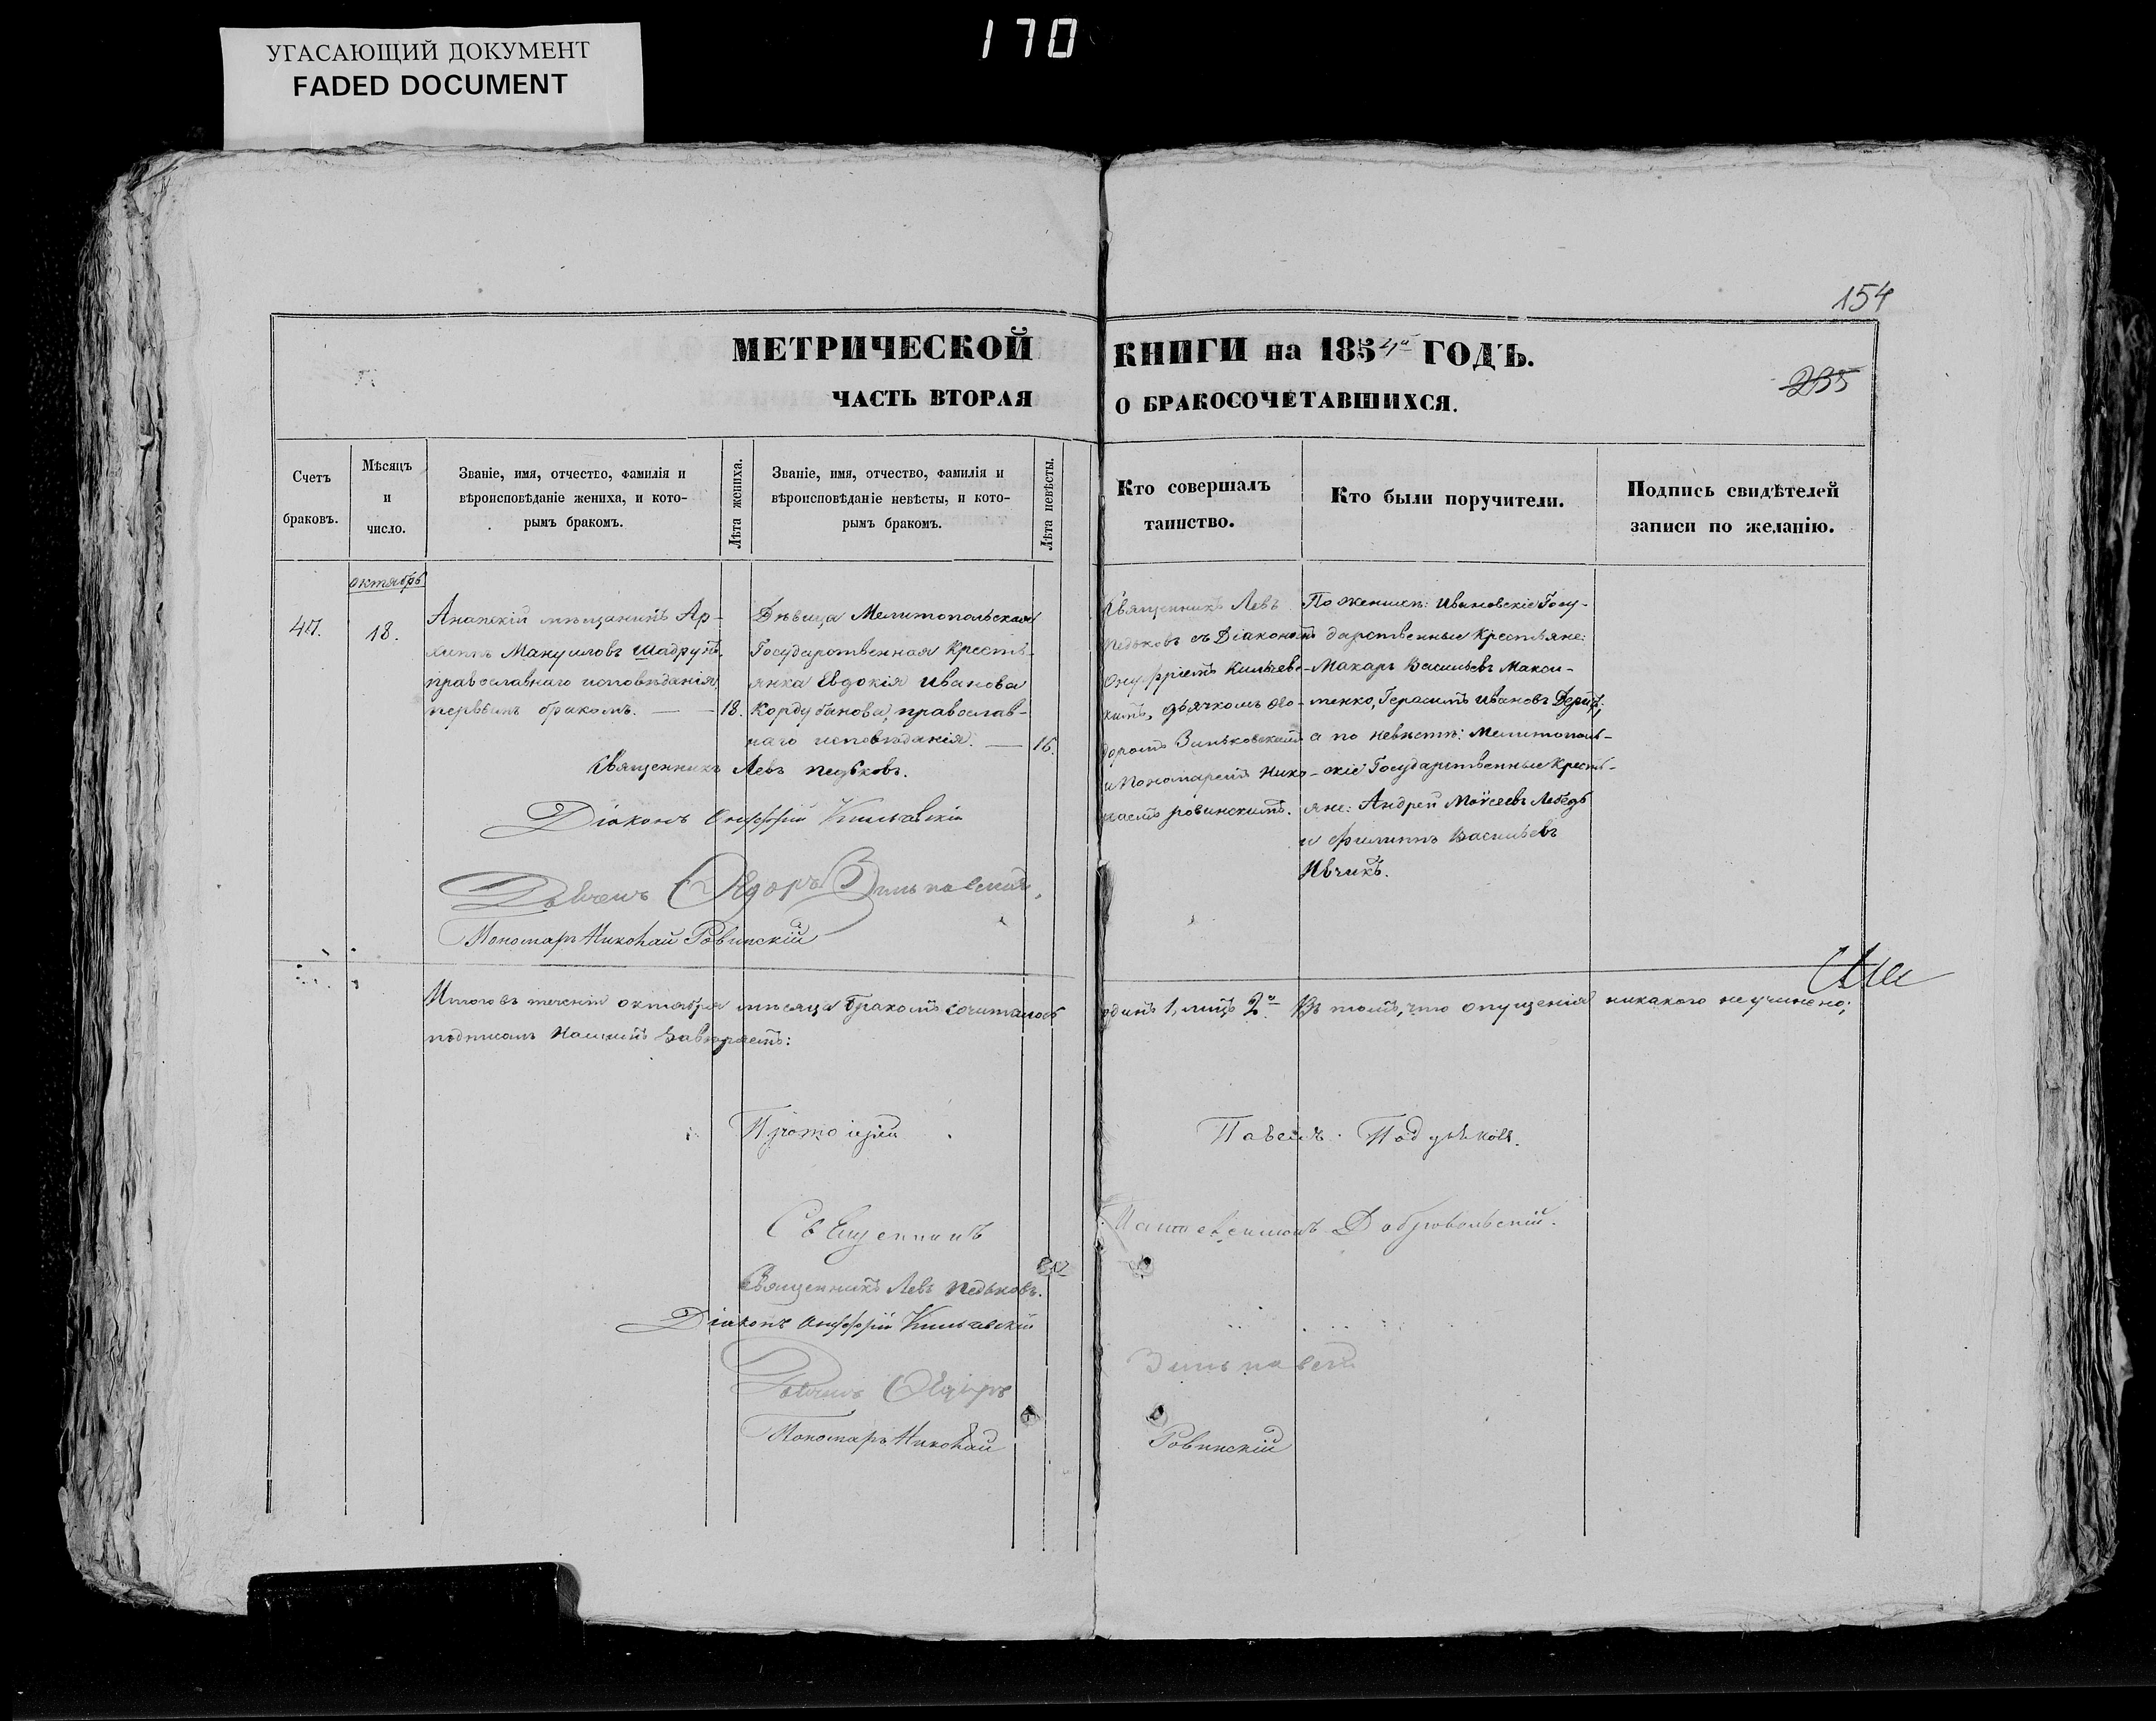 УГАСАЮЩИЙ ДОКУМЕНТ
FADED DOCUMENT
170
154
МЕТРИЧЕСКОЙ КНИГИ на 1854й ГОДЪ.
235
ЧАСТЬ ВТОРАЯ О БРАКОСОЧЕТАВШИХСЯ.
Счетъ
браковъ.
Мѣсяцъ
и
число.
Званіе, имя, отчество, фамилія и
вѣроисповѣданіе жениха, и кото-
рымъ бракомъ.
Лѣта жениха.
Званіе, имя, отчество, фамилія и
вѣроисповѣданіе невѣсты, и кото-
рымъ бракомъ.
Лѣта невѣсты.
Кто совершалъ
таинство.
Кто были поручители.
Подпись свидѣтелей
записи по желанію.
октябрь
47.
18.
Анапскій мѣщанинъ Ар-
хиппъ Мануиловъ Шадрунъ.
православнаго исповѣданія,
первымъ бракомъ. —
18.
Дѣвица Мелитопольская
Государственная Кресть-
янка Евдокія Иванова
Кордубанова, православ-
наго исповѣданія. —
16.
Священникъ Левъ
Педьковъ съ Діакономъ
Онуфріемъ Кильчев-
кимъ, дьячкомъ Ѳео-
доромъ Зиньковскимъ
и Пономаремъ Нико-
лаемъ Ровинскимъ.
По женихѣ: Ивановскіе Госу-
дарственные Крестьяне:
Макаръ Васильевъ Макси-
менко, Герасимъ Ивановъ
а по невѣстѣ: Мелитополь-
скіе Государственные Кресть-
яне: Андрей Моисеевъ Лебедь
и Филиппъ Васильевъ
Ивчикъ.
Священникъ Левъ Педьковъ.
Діаконъ Онуфрій
Дьячекъ Ѳедоръ Зиньковскій.
Пономарь Николай Ровинскій
Итого въ теченіи октября мѣсяца бракомъ сочиталось одинъ 1, лицъ 2е. Въ томъ, что опущенія никакого не учинено;
подписомъ нашимъ завѣряемъ:
Протоіерей Павелъ
Священникъ Пантелеимонъ Добровольскій.
Священникъ Левъ Педьковъ.
Діаконъ Онуфрій
Дьячекъ Ѳедоръ Зиньковскій
Пономарь Николай Ровинскій